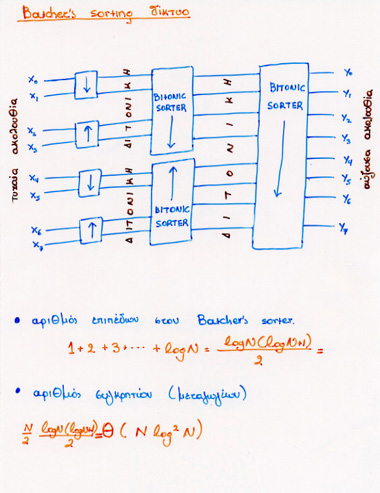 Batcher's sorting δίκτυο
τυχαία ακολουθία
X₀
X₁
X₂
X₃
X₄
X₅
X₆
X₇
↓
↑
↓
↑
ΔΙΤΟΝΙΚΗ
ΔΙΤΟΝΙΚΗ
BITONIC
SORTER
↓
↑
BITONIC
SORTER
ΔΙΤΟΝΙΚΗ
BITONIC
SORTER
↓
Y₀
Y₁
Y₂
Y₃
Y₄
Y₅
Y₆
Y₇
αύξουσα ακολουθία
• αριθμός επιπέδων στου Batcher's sorter.
1 + 2 + 3 + ... + logN = logN(logN+1)/2 =
• αριθμός συγκριτών (μεταγωγέων)
N/2 logN(logN+1)/2 = Θ ( N log² N )